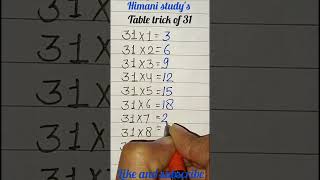 Himani study's
Table trick of 31
31×1=3
31×2=6
31×3=9
31×4=12
31×5=15
31×6=18
31×7=2
31×8=
like and subscribe